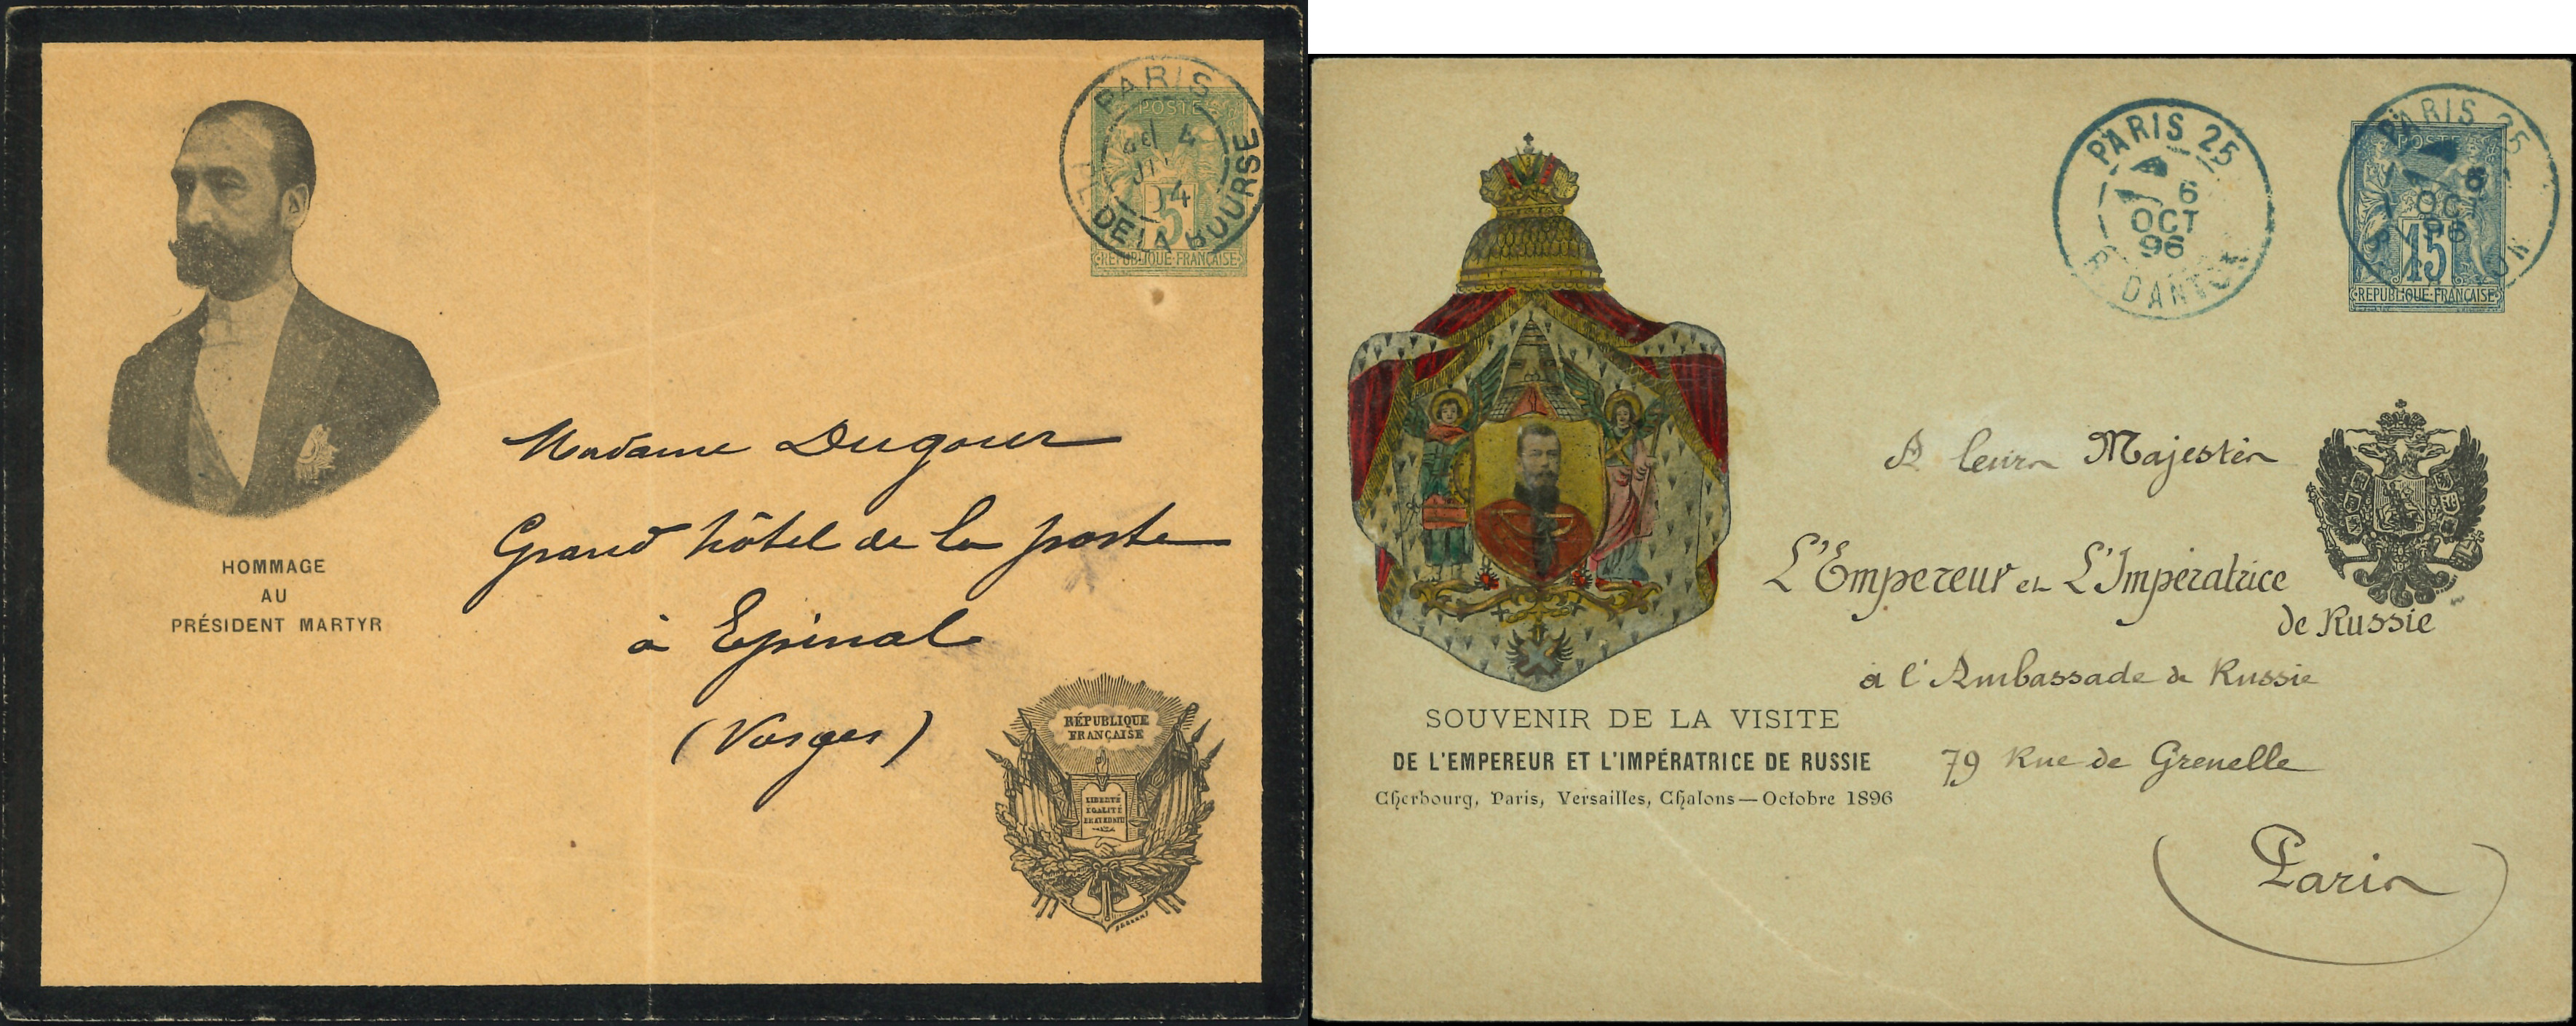 PARIS
4
PL. DE LA BOURSE
POSTES
5
REPUBLIQUE FRANCAISE
HOMMAGE
AU
PRÉSIDENT MARTYR
Madame Dugour
Grand hôtel de la poste
à Epinal
(Vosges)
RÉPUBLIQUE
FRANÇAISE
LIBERTÉ
EGALITÉ
FRATERNITÉ
PARIS 25
6
OCT
96
R. DANTON
PARIS 25
6
OCT
96
POSTES
15
REPUBLIQUE FRANCAISE
A leurs Majestés
L'Empereur et L'Impératrice
de Russie
à l'Ambassade de Russie
79 Rue de Grenelle
(Paris)
SOUVENIR DE LA VISITE
DE L'EMPEREUR ET L'IMPÉRATRICE DE RUSSIE
Cherbourg, Paris, Versailles, Chalons—Octobre 1896